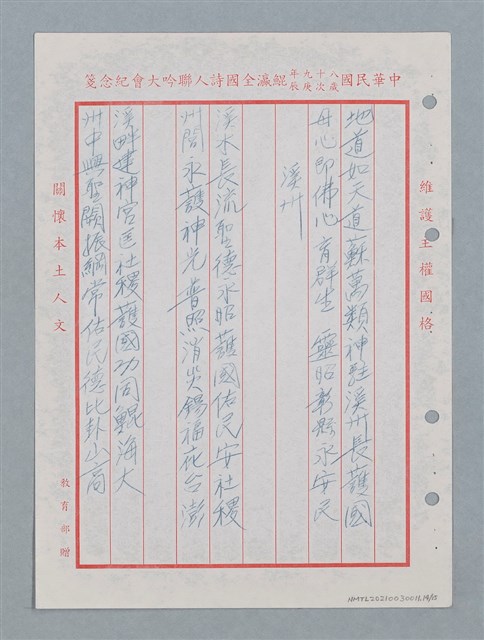 中華民國八十九年歲次庚辰鯤瀛全國詩人聯吟大會紀念箋
維護主權國格
地道如天道蘇萬類神駐溪州長護國
母心即佛心育群生靈昭彰縣永安民
溪州
溪水長流聖德永昭護國佑民安社稷
州閭永護神光普照消災錫福在台澎
溪畔建神宮匡社稷護國功同鯤海大
州中興聖闕振綱常佑民德比卦山高
關懷本土人文
教育部贈
NMTL20210030016